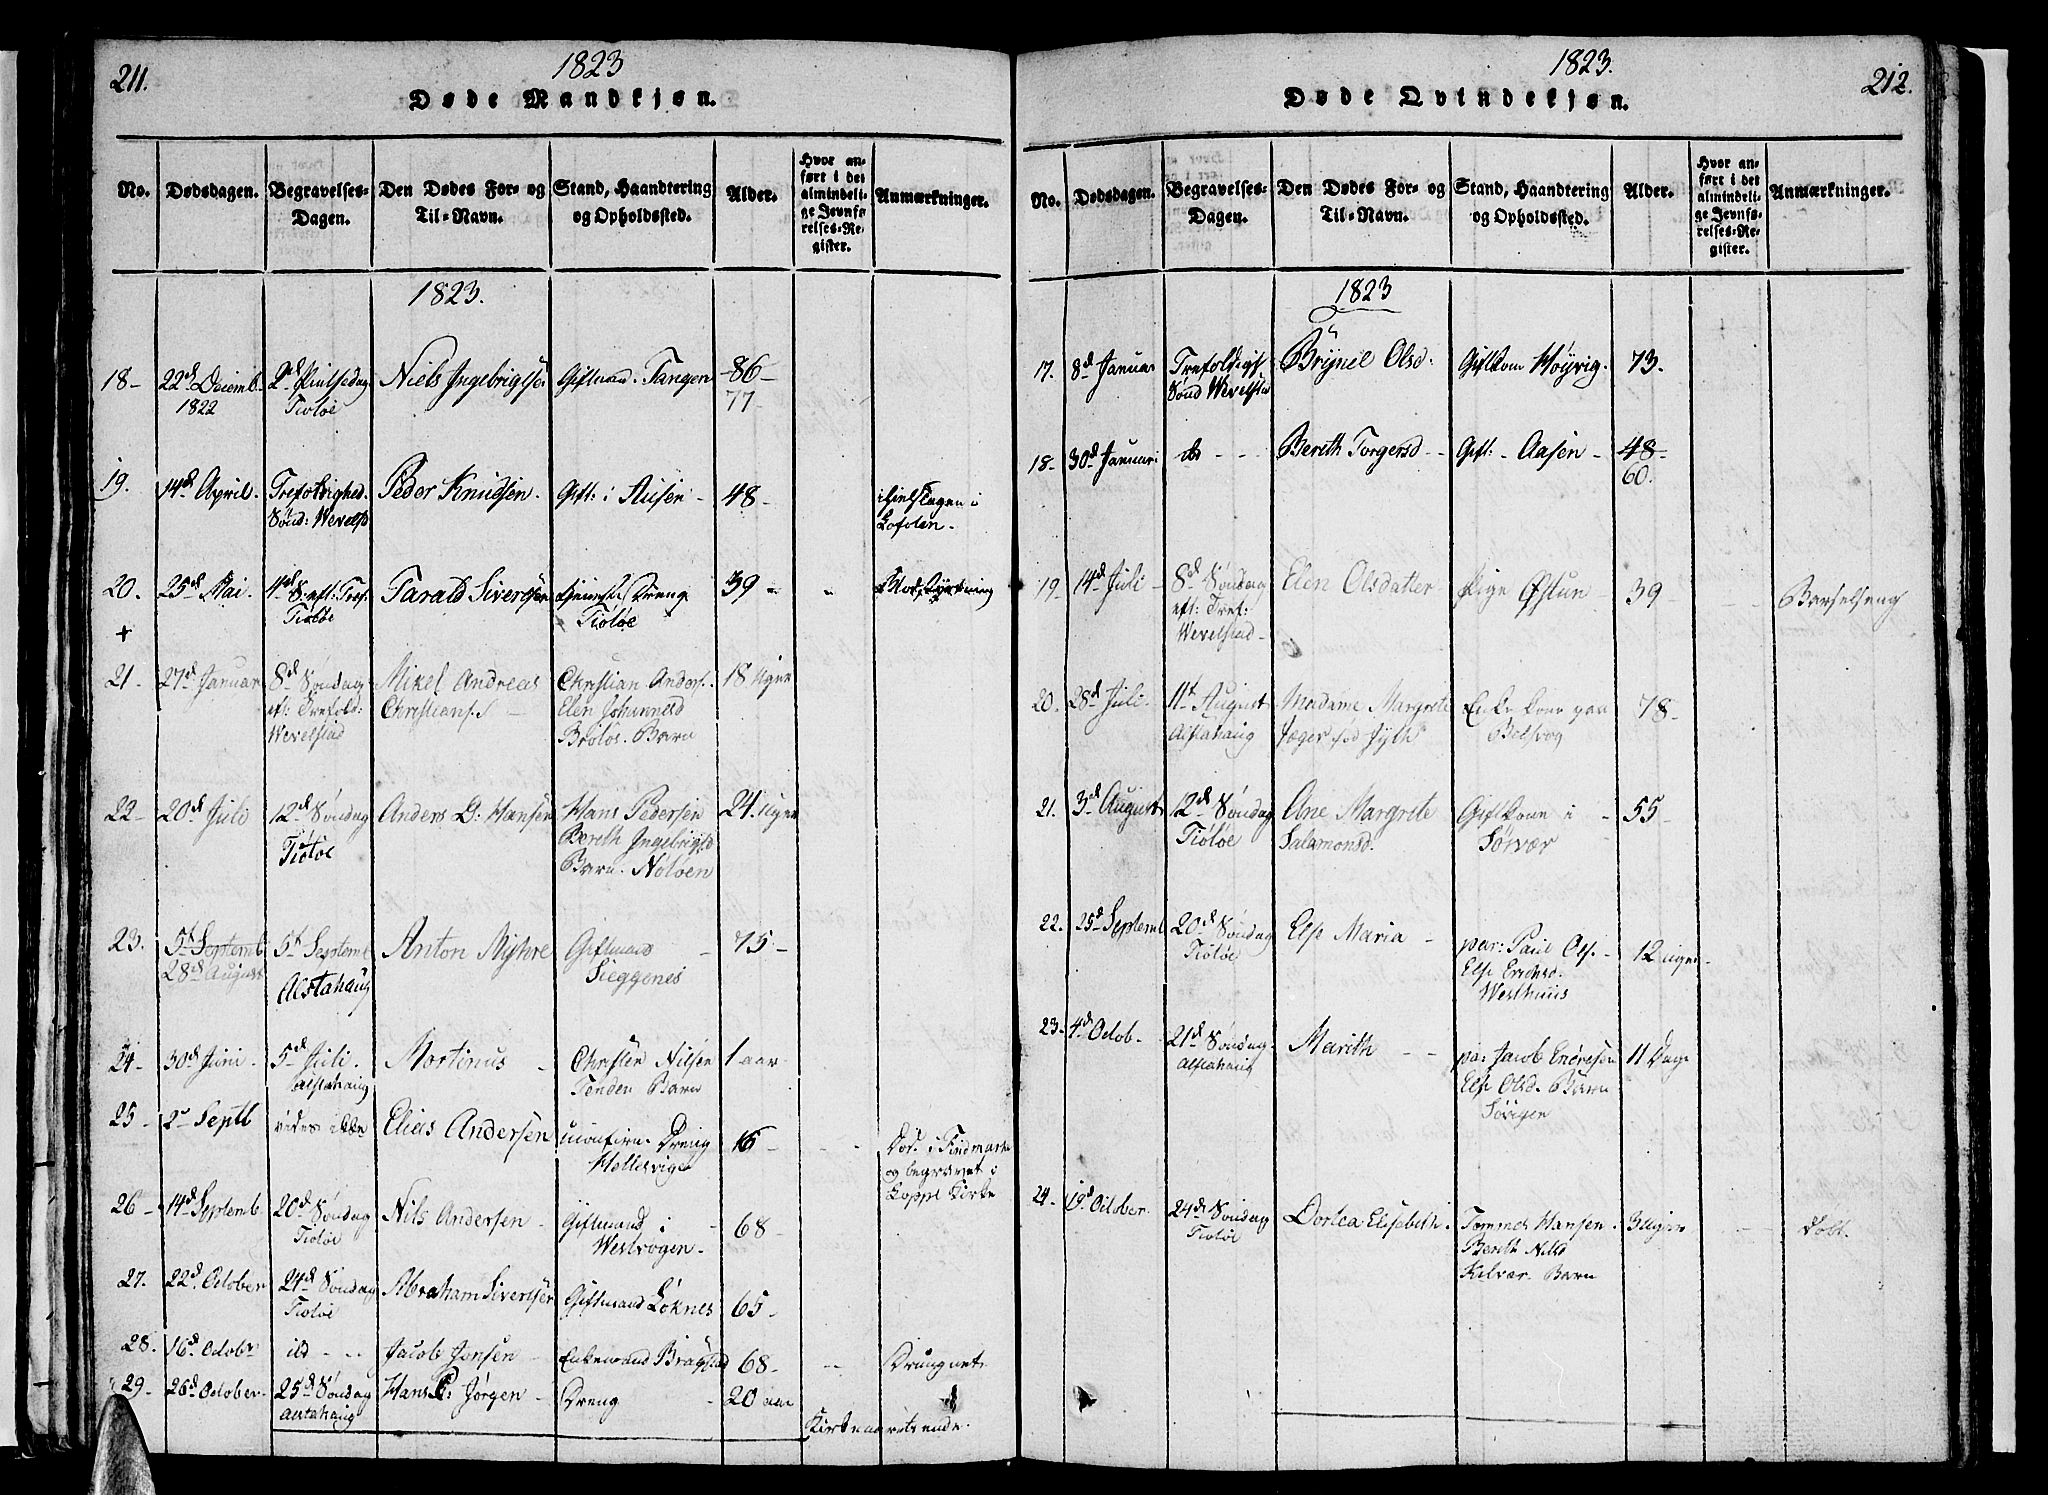 211.
1823
Døde Mandkjøn.
No.
Dødsdagen.
Begravelses-
Dagen.
Den Dødes For- og
Til-Navn.
Stand, Haandtering
og Opholdssted.
Alder.
Hvor an-
ført i det
almindeli-
ge Jevnfø-
relses-Re-
gister.
Anmærkninger.
1823.
18-
22d Decemb.
1822
2d Pintsedag
Tiøtøe
Niels Ingebrigtse.
Giftmand. Tangen
86-
77-
19.
14d April.
Trefoldighed.
Sønd: Wevelst
Peder Knudsen.
Gift: i
48-
ihielslagen i
Lofoten.
20.
25d Mai.
4d S: eft: Tref:
Tiøtøe
Tarald Sivertsen
Dreng
Tiøtøe
39-
+
21-
27d Januar
8d Søndag
eft: Trefold:
Wevelstad
Mikel Andreas
Christians. S
Christian Anders.
Elen Johannesd
Brotøe. Barn
18 Uger
22-
20d Juli
12d Søndag
Tiøtøe
Anders D: Hansen
Hans Pedersen
Bereth Ingebrigtsd
Barn.
24 Uger
23.
5t Septemb
28d August
5t Septemb
Alstahaug
Anton Myhre
Giftmand
Sieggenes
75-
24
30d Juni.
5d Juli.
Alstahaug
Mortinus
Christen Nilsen
Tenden Barn
1 aar
25-
2d Septb
vides ikke
Elias Andersen
uconfirm. Dreng
Hellesvigen
16-
Død i Findmarken
og begravet i
Loppe Kirke
26-
14d Septemb.
20d Søndag
Tiøtøe
Nils Andersen
Giftmand i
Westvogen.
68-
27.
22d October
24d Søndag
Tiøtøe
Abraham Sivertsen
Giftmand Løknes
65-
28.
16d Octobr
ild
Jacob Jensen
Enkemand
68-
Druugnet
29-
26d October.
25d Søndag
Alstahaug
Hans P: Jørgen
Dreng
20 aar
1823.
212.
Døde Qvindekjøn.
No.
Dødsdagen.
Begravelses-
Dagen.
Den Dødes For- og
Til-Navn.
Stand, Haandtering
og Opholdssted.
Alder.
Hvor an-
ført i det
almindeli-
ge Jevnfø-
relses-Re-
gister.
Anmærkninger.
1823
17.
8d Januar
Trefoldigh.
Sønd Wevelsta
Brynel Olsd.
Giftkone Høyvig.
73.
18-
30d Januar:
do
Bereth Torgersd
Gift: Aasen
48-
60.
19
14d Juli
8d Søndag
eft: Tref:
Wevelstad-
Elen Olsdatter
Pige Østun
39-
Barselseng
20.
28d Juli.
11t August
Alstahaug
Madame Margrete
Jæger fød Jyth
Enke Kone paa
Belsvog
78-
21.
3d August
12d Søndag
Tiøtøe
Ane Margrete
Salamonsd.
Giftkone i
Sørvær
55-
22.
25d Septemb
20d Søndag
Tiøtøe
Else Maria
par: Paul Ols.
Else Ericksd.
Westhuus
12 uger
23.
4d Octob-
21d Søndag.
Alstahaug
Marith
pa: Jacob Endresen
Else Olsd. Barn
Sørigen
11 Dage
24-
19d October.
24d Søndag
Tiøtøe
Dortea Elisebeth.
Tommes Hansen.
Bereth Nilsd
Kilvær. Barn
3 Uger
Døbt.